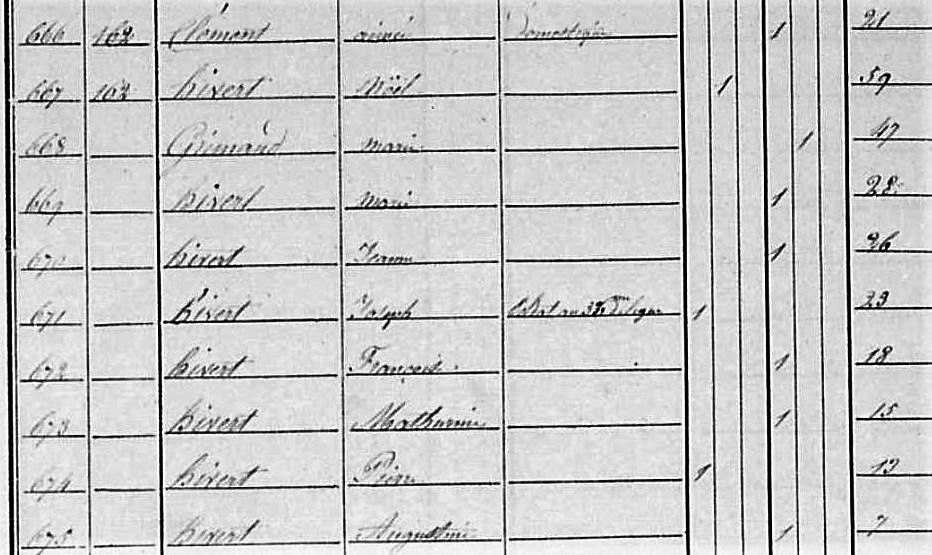 666 162 Clément aimée Domestique 1 21
667 162 hivert Noël 1 59
668 Grimaud Marie 1 47
669 hivert Marie 1 28
670 hivert Jeanne 1 26
671 hivert Joseph au 1 23
672 hivert Françoise 1 18
673 hivert Mathurine 1 15
674 hivert Pierre 1 13
675 hivert Augustine 1 7